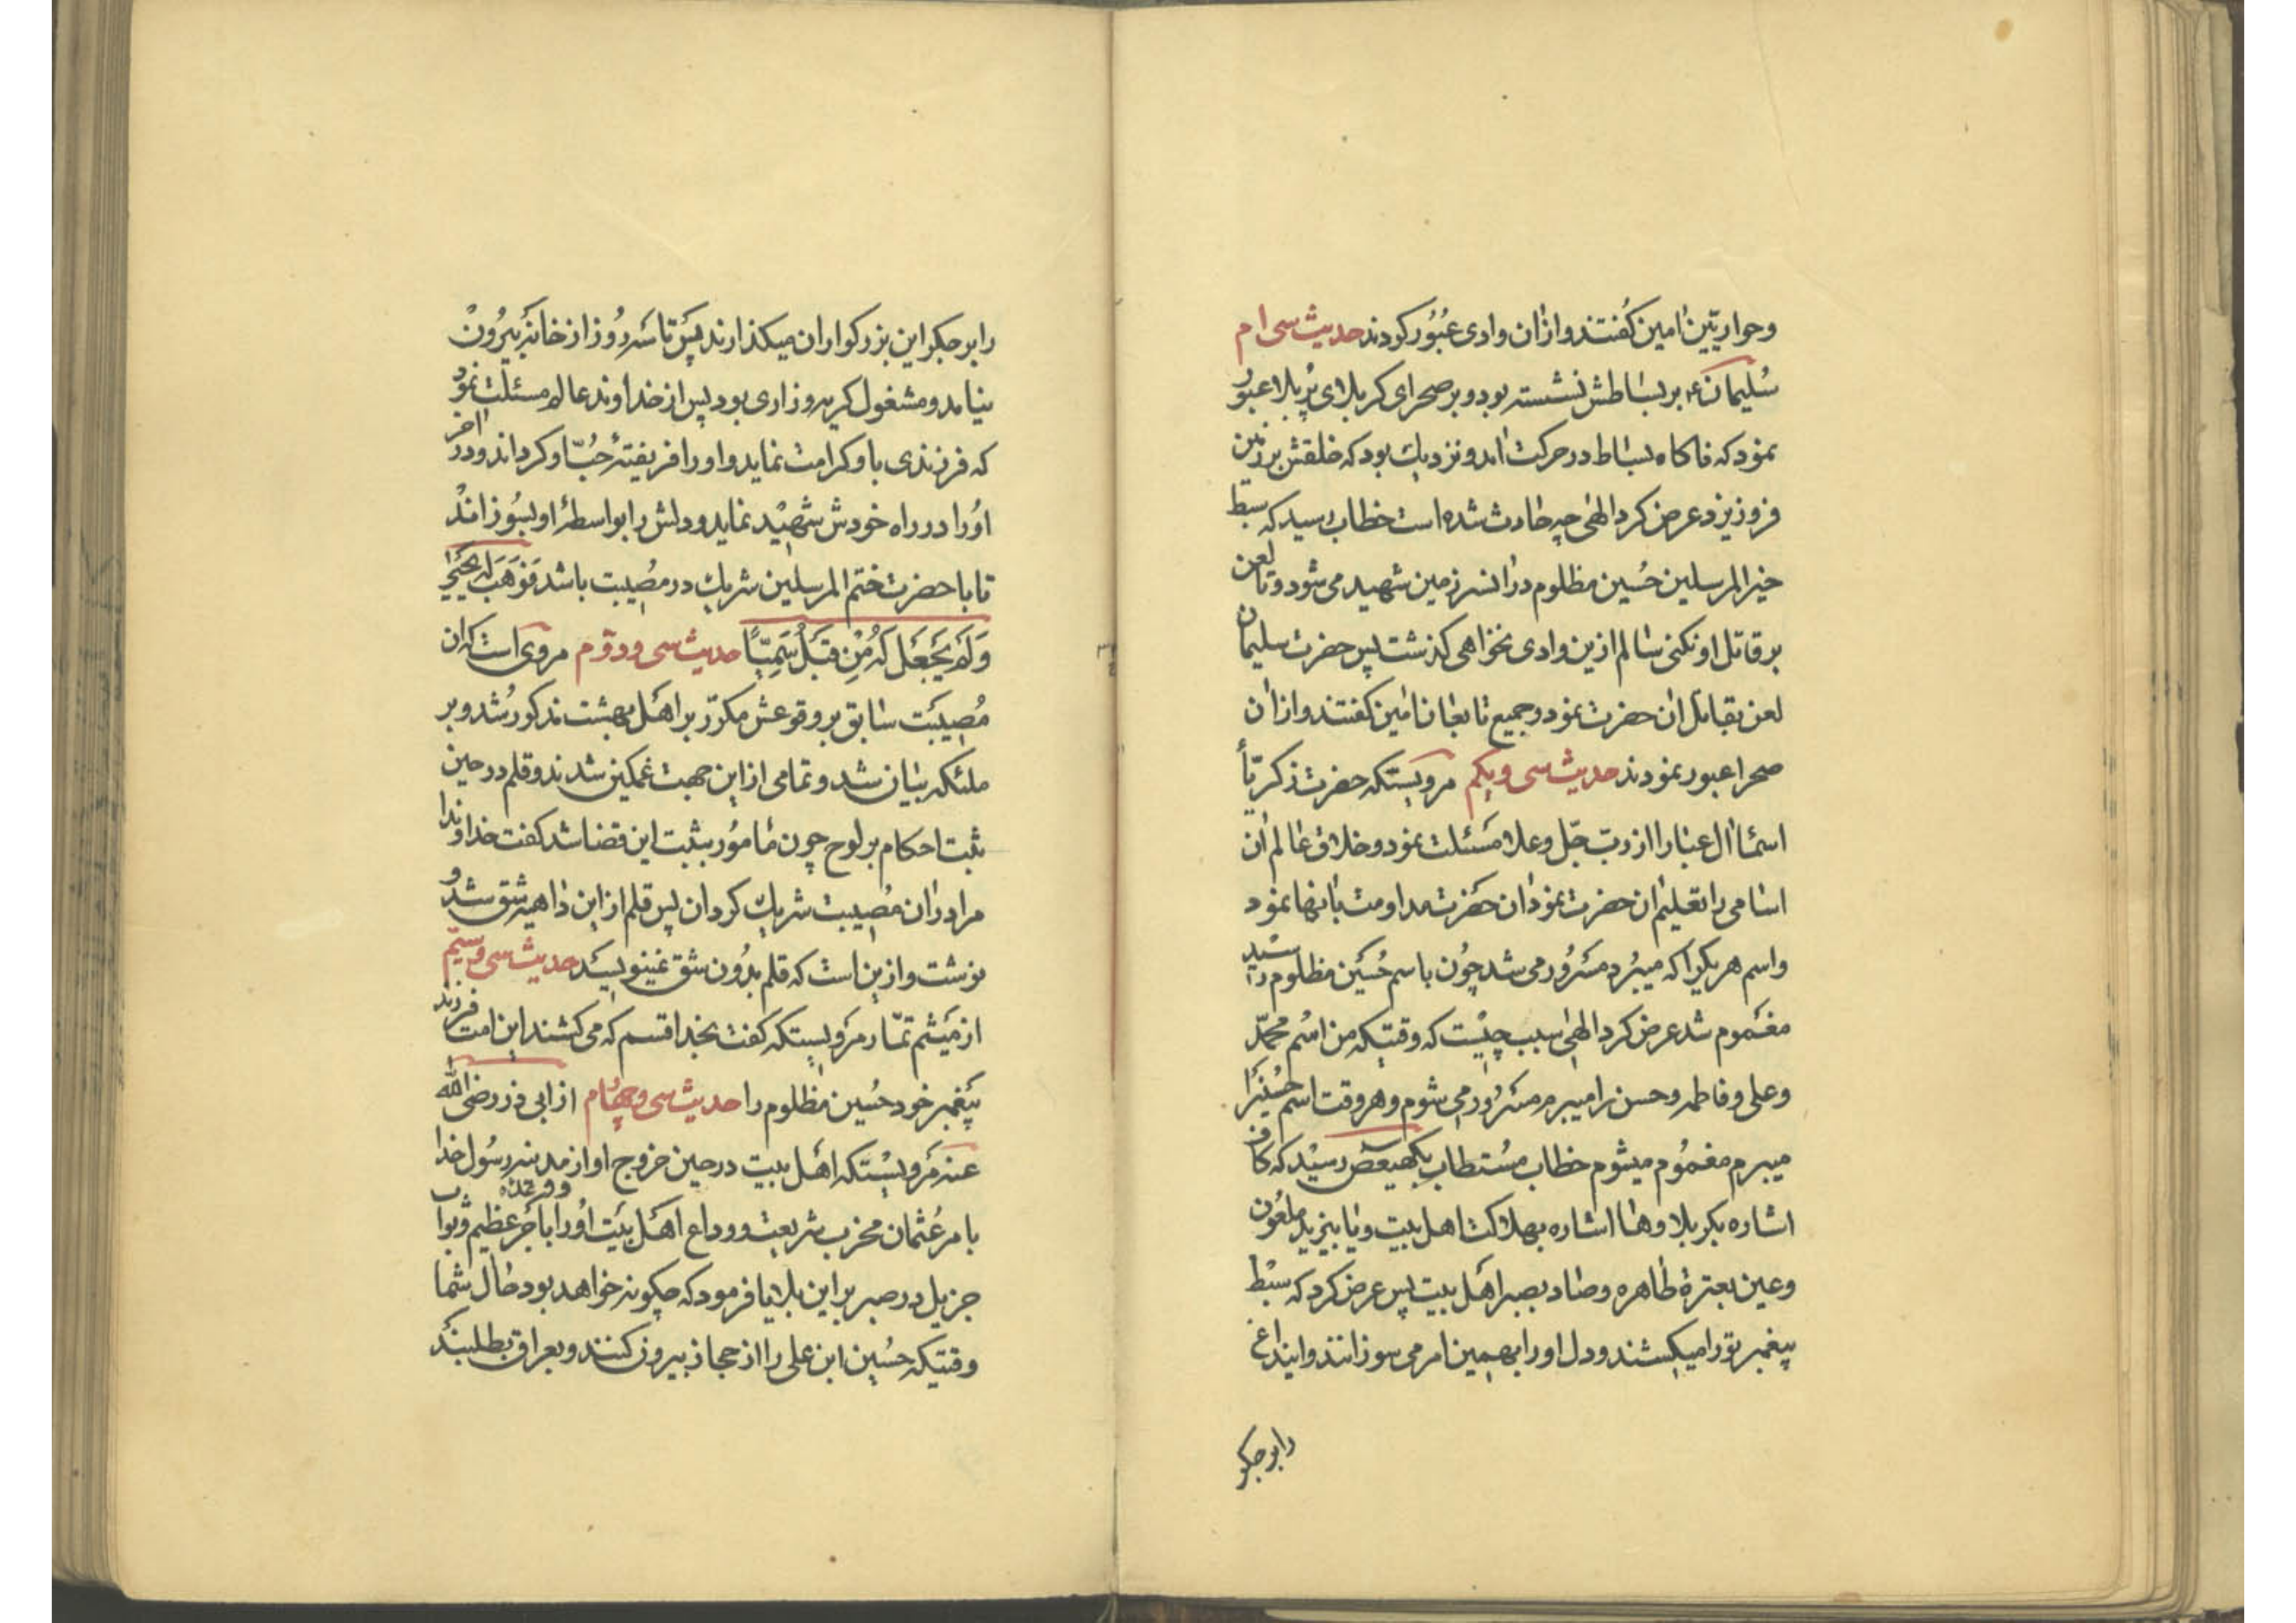 وحواریّین امین کفتند و ازان وادی عبُور کردند حدیث سی ام
سُلیمان ع بر بساطش نشسته بود و بر صحرای کربلای پُر بلا عبور
نمود که ناکاه بساط در حرکت امد و نزدیك بود که خلقش بر زمین
فرو ریزد عرض کرد الهٰی چه حادث شده است خطاب رسید که سبط
خیر المرسلین حُسین مظلوم در انسرزمین شهید می شود و تا لعن
بر قاتل او نکنی سالم ازین وادی نخواهی کذشت پس حضرت سلیمان
لعن بقاتل ان حضرت نمود و جمیع تابعان امین کفتند و ازان
صحرا عبور نمودند حدیث سی و یکم مرویستکه حضرت زکریّا
اسماء ال عبا را از ربّ جلّ وعلا مَسئلت نمود و خلاق عالم ان
اسامی را تعلیم ان حضرت نمود ان حضرت مداومت بانها نمود
واسم هر یکیرا که میبرد مسرُور می شد چون باسم حُسَین مظلوم رسید
مغموم شد عرض کرد الهٰی سبب چیست که وقتیکه من اسم محمّد
وعلی و فاطمه و حسن را میبرم مسرور می شوم و هر وقت اسم حسینرا
میبرم مغمُوم میشوم خطاب مُستطاب بکهیعص رسید که کاف
اشاره بکربلا وها اشاره بهلاکت اهل بیت و یا بیزید ملعون
وعین بعترة طاهره وصاد بصبر اهل بیت پس عرض کرد که سبط
پیغمبر تو را میکشند و دل او را بهمین امر می سوزانند و ایندٰاغ
را بر جکر
را بر جکر این بزرکواران میکذارند پس تا سه رُوز از خانه بیرُون
نیامد و مشغول کریه و زاری بود پس از خداوند عالم مسئلت نمود
که فرزندی باو کرامت نماید و او را فریفتهٔ حُبّ او کرداند و در اخر
اوُرا در راه خودش شهید نماید و دلش را بواسطهٔ او بسُوزاند
تا با حضرت ختم المرسلین شریك در مصُیبت باشد فَوَهَبَ لَه یَحیَی
وَلَم یَجعَل لَهُ مِن قَبلُ سَمِیّاً حدیث سی و دوّم مروی است که ان
مُصیبَت سابق بر وقوعش مکرّر بر اهل بهشت مذکور شد و بر
ملئکه بیان شد و تمامی از این جهت غمکین شدند و قلم در حین
ثبت احکام بر لوح چون مٔامُور بثبت این قضا شد کفت خداوندا
مرا در ان مصیبت شریك کردان پس قلم از این داهیه شق شد و
نوشت و ازین است که قلم بدون شق نمینویسد حدیث سی و سیّم
از میثم تمّار مرویستکه کفت بخدا قسم که می کشند این امت فرزند
پیغمبر خود حُسین مظلوم را حدیث سی و چهارم از ابی ذر رضی الله
عنه مرویستکه اهل بیت در حین خروج او از مدینه رسول خدا
بامر عُثمان مخرب شریعت و وداع اهل بیت اوُرا باَجر عظیم و ثواب
جزیل در صبر بر این بلایا فرمود که چکونه خواهد بود حٰال شما
وقتیکه حُسین ابن علی را از حجاز بیرون کنند و بعراق بطلبند